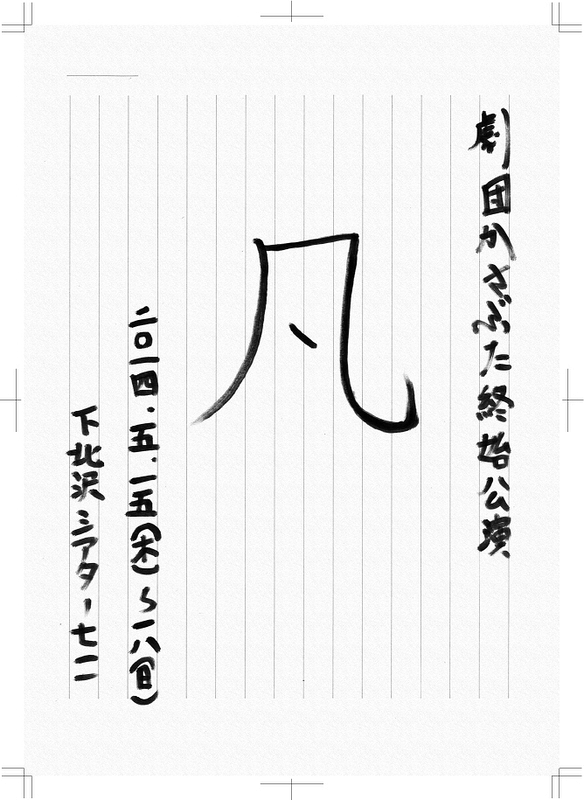 劇団かさぶた終始公演
凡
二〇一四.五.一五(木)〜一八(日)
下北沢シアター七一一